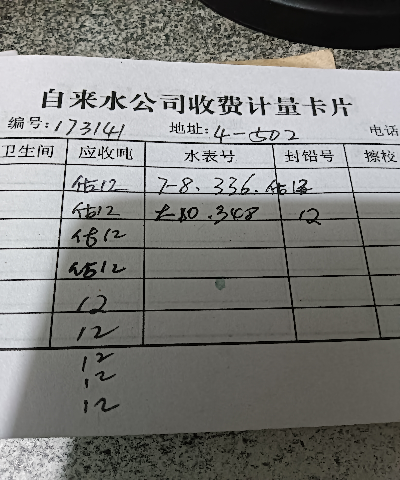 自来水公司收费计量卡片
编号:173141 地址:4-502 电话
卫生间 应收吨 水表号 封铅号 擦校
估12 7-8.336.估12
估12 10.348 12
估12
估12
12
12
12
12
12